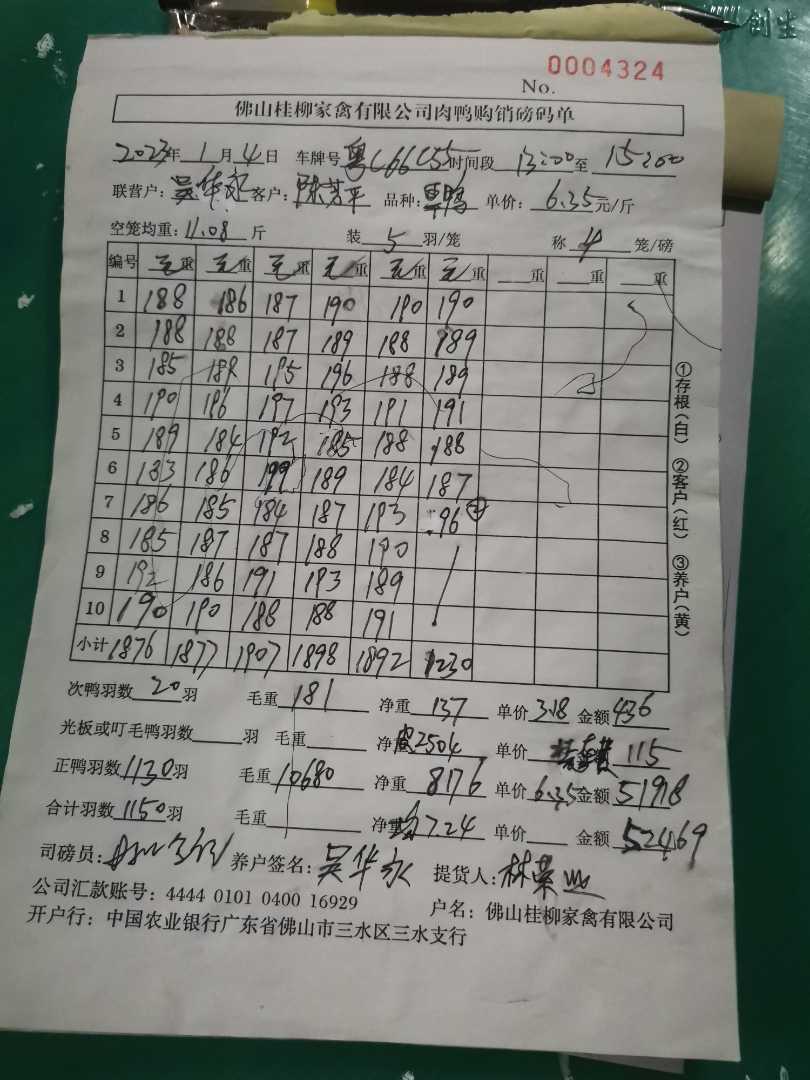 创生
0004324
No.
佛山桂柳家禽有限公司肉鸭购销磅码单
2023年 1月 4日 车牌号 粤C66C55 时间段 13:00至 15:00
联营户：吴华永 客户：陈芳平 品种： 单价：6.35元/斤
空笼均重：11.08斤 装 5 羽/笼 称 4 笼/磅
编号 毛重 毛重 毛重 毛重 毛重 毛重 重 重 重
1 188 186 187 190 190 190
2 188 188 187 189 188 189
3 185 188 195 196 188 189
4 190 196 197 193 191 191
5 189 184 192 185 188 188
6 183 186 199 189 184 187
7 186 185 184 187 193 96
8 185 187 187 188 190
9 192 186 191 193 189
10 190 190 188 188 191
小计 1876 1877 1907 1898 1892 1230
次鸭羽数 20羽 毛重 181 净重 137 单价 3.18 金额 436
光板或叮毛鸭羽数 羽 毛重 净重 皮2504 单价 115
正鸭羽数 1130羽 毛重 10680 净重 8176 单价 6.35 金额 51918
合计羽数 1150羽 毛重 净重 均7.24 单价 金额 52469
司磅员： 养户签名：吴华永 提货人：林
公司汇款账号：4444 0101 0400 16929 户名：佛山桂柳家禽有限公司
开户行：中国农业银行广东省佛山市三水区三水支行
①存根（白） ②客户（红） ③养户（黄）